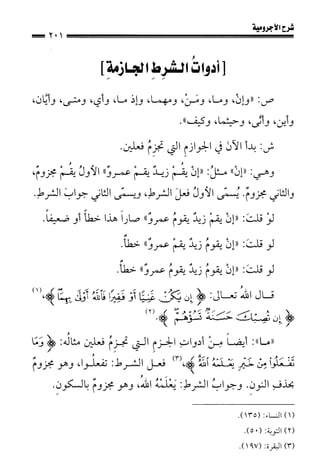 شرح الآجرومية
٢٠١
[أدواتُ الشرطِ الجازمةِ]
ص: «وإنْ، وما، ومَنْ، ومهما، وإذ ما، وأي، ومتى، وأيَّان،
وأين، وأنَّى، وحيثما، وكيف».
ش: بدأ الآنَ في الجوازمِ التي تجزمُ فعلين.
وهي: «إنْ» مثلُ: «إنْ يقُمْ زيدٌ يقمْ عمروٌ» الأولُ يقُمْ مجزومٌ،
والثاني مجزومٌ. يُسمّى الأولُ فعلَ الشرطِ، ويسمّى الثاني جوابَ الشرطِ.
لوْ قلتَ: «إنْ يقمْ زيدٌ يقومُ عمرو» صارَ هذا خطأً أو ضعيفاً.
لو قلتَ: «إنْ يقومُ زيدٌ يقمْ عمرو» خطأً.
لو قلتَ: «إنْ يقومُ زيدٌ يقومُ عمرو» خطأً.
قال اللهُ تعالى: ﴿ إِن يَكُنْ غَنِيًّا أَوْ فَقِيرًا فَاللَّهُ أَوْلَىٰ بِهِمَا ﴾،(١)
﴿ إِن تُصِبْكَ حَسَنَةٌ تَسُؤْهُمْ ﴾.(٢)
«ما»: أيضاً مِنْ أدواتِ الجزمِ التي تجزمُ فعلين مثالُه: ﴿ وَمَا
تَفْعَلُوا مِنْ خَيْرٍ يَعْلَمْهُ اللَّهُ ﴾،(٣) فعل الشرط: تفعلُوا، وهو مجزومٌ
بحذفِ النونِ. وجوابُ الشرطِ: يَعْلَمْهُ اللهُ، وهو مجزومٌ بالسكونِ.
(١) النساء: (١٣٥).
(٢) التوبة: (٥٠).
(٣) البقرة: (١٩٧).